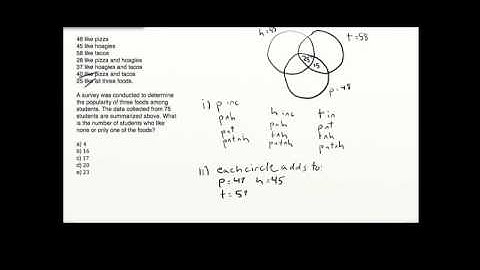 48 like pizza
45 like hoagies
58 like tacos
28 like pizza and hoagies
37 like hoagies and tacos
40 like pizza and tacos
25 like all three foods.
A survey was conducted to determine
the popularity of three foods among
students. The data collected from 75
students are summarized above. What
is the number of students who like
none or only one of the foods?
a) 4
b) 16
c) 17
d) 20
e) 23
t=58
25
15
p=48
i) p inc h inc t in
pnh pnh pnt
pnt tnh tnh
pntnh pntnh pntnh
ii) each circle adds to:
p=48 h=45
t=58